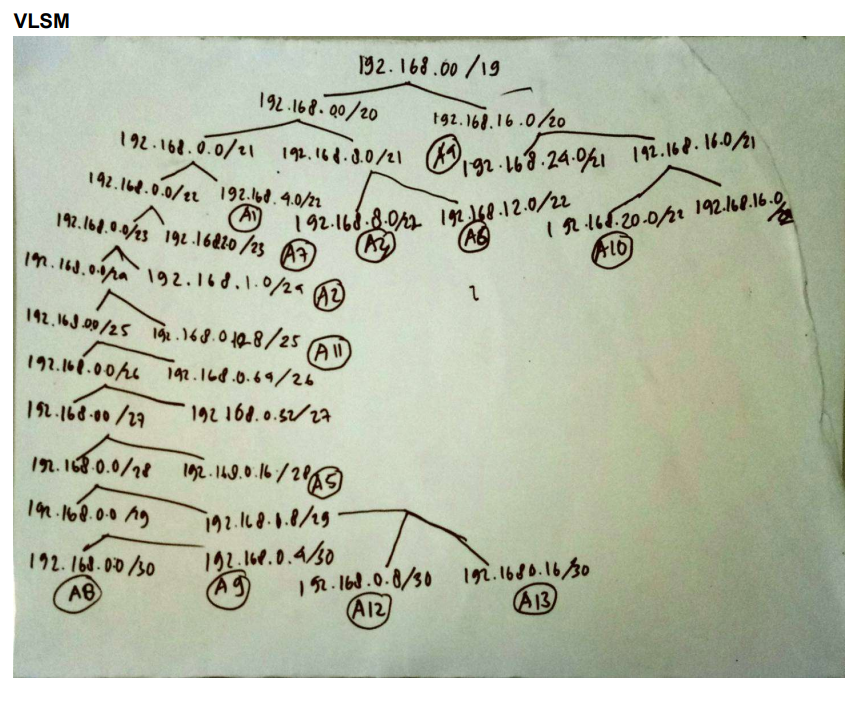 VLSM
192.168.00/19
192.168.00/20 192.168.16.0/20
192.168.0.0/21 192.168.8.0/21 A4 192.168.24.0/21 192.168.16.0/21
192.168.0.0/22 192.168.4.0/22 192.168.8.0/22 192.168.12.0/22 192.168.20.0/22 192.168.16.0/
A1 A6 A10
192.168.0.0/23 192.16820/23 A7
192.168.0.0/24 192.168.1.0/24 A2
192.168.00/25 192.168.0128/25 A11
192.168.00/26 192.168.0.64/26
192.168.00/27 192 168.0.32/27
192.168.0.0/28 192.168.0.16/28 A5
192.168.0.0/29 192.168.0.8/29
192.168.00/30 192.168.0.4/30 192.168.0.8/30 192.1680.16/30
A8 A9 A12 A13